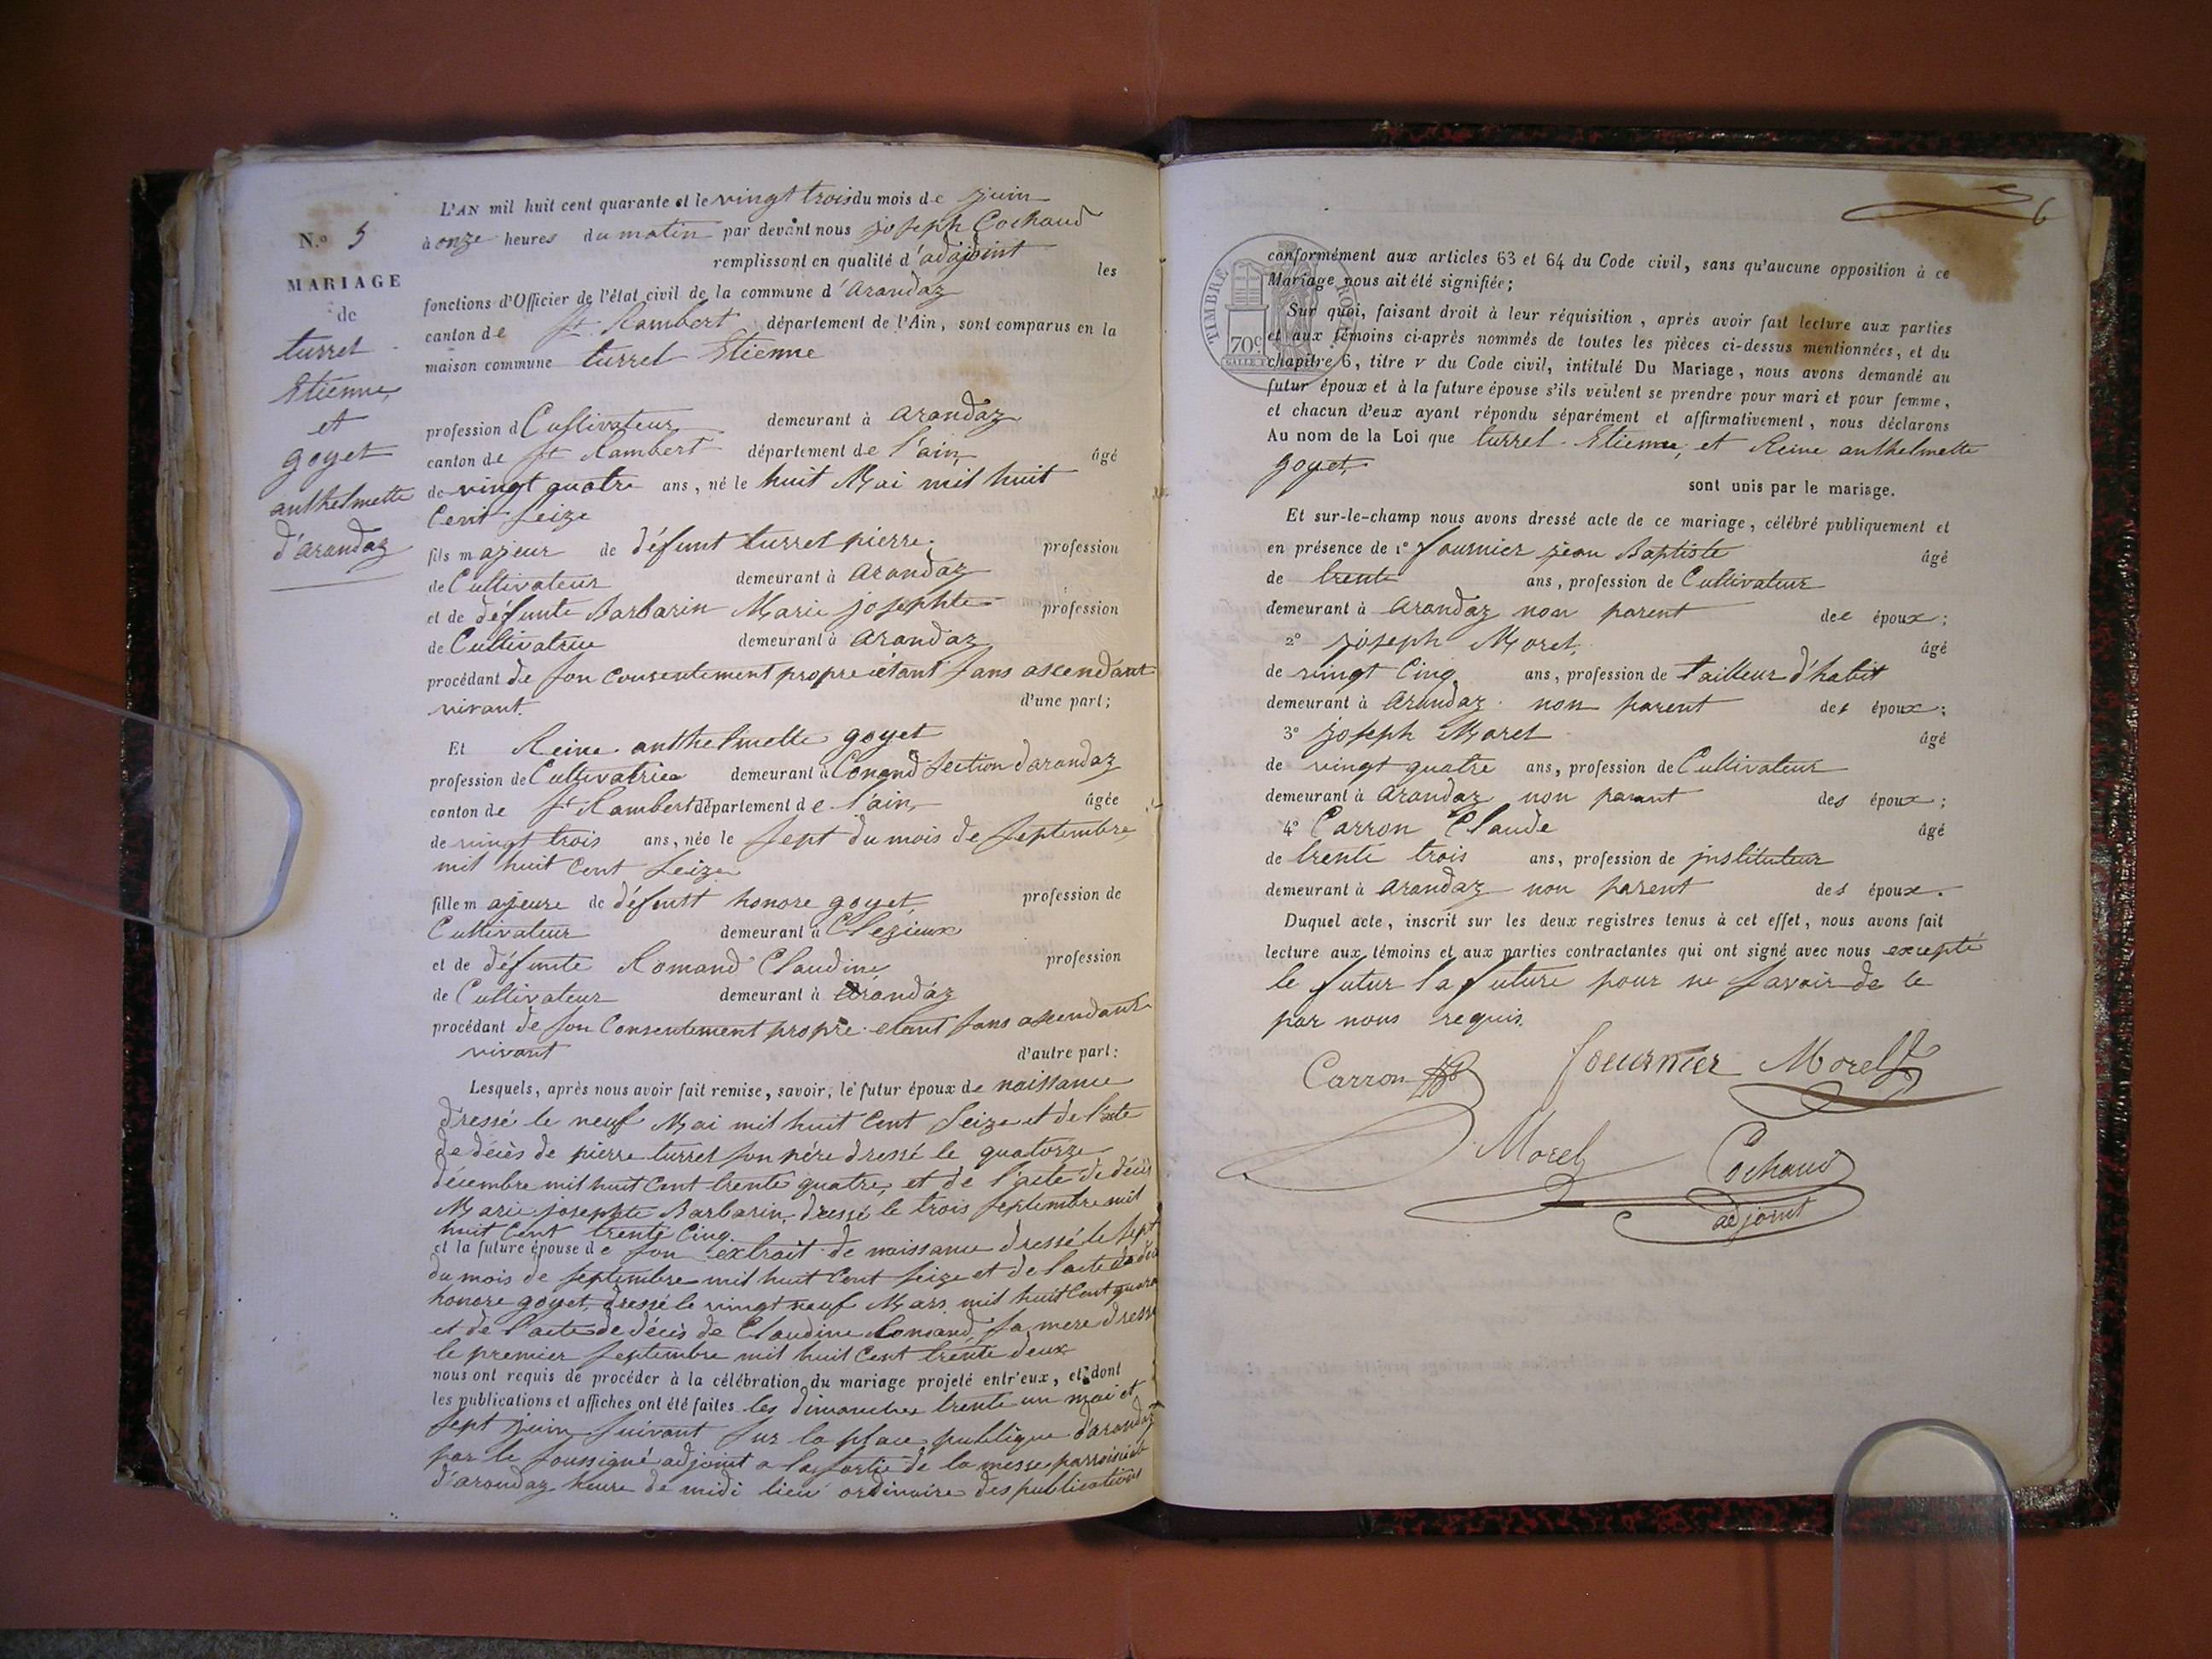 N.o 5
MARIAGE
de
turrel
Etienne
et
goyet
anthelmette
d'arandaz
L'AN mil huit cent quarante et le vingt trois du mois de juin
à onze heures du matin par devant nous joseph Cochaud
remplissant en qualité d'adjoint les
fonctions d'Officier de l'état civil de la commune d'arandaz
canton de St. Rambert département de l'Ain, sont comparus en la
maison commune turrel Etienne
profession d Cultivateur demeurant à arandaz
canton de St Rambert département de l'ain âgé
de vingt quatre ans, né le huit Mai mil huit
Cent seize
fils majeur de défunt turrel pierre profession
de Cultivateur demeurant à arandaz
et de défunte Barbarin Marie josephte profession
de Cultivatrice demeurant à arandaz
procédant de son consentement propre étant sans ascendant
vivant. d'une part;
Et Reine anthelmette goyet
profession de Cultivatrice demeurant à Conand Section d'arandaz
canton de St Rambert département de l'ain âgée
de vingt trois ans, née le sept du mois de septembre
mil huit Cent seize
fille majeure de défunt honore goyet profession de
Cultivateur demeurant à Clezieux
et de défunte Romand Claudine profession
de Cultivateur demeurant à arandaz
procédant de son Consentement propre etant sans ascendant
vivant d'autre part:
Lesquels, après nous avoir fait remise, savoir, le futur époux de naissance
dressé le neuf Mai mil huit Cent seize et de l'acte
de décès de pierre turrel son père dressé le quatorze
décembre mil huit Cent trente quatre, et de l'acte de décès
Marie josephte Barbarin, dressé le trois septembre mil
huit Cent trente Cinq.
et la future épouse de son extrait de naissance dressé le sept
du mois de septembre mil huit Cent seize et de l'acte de
honore goyet, dressé le vingt neuf Mars mil huit Cent
et de l'acte de décès de Claudine Romand, sa mere dressé
le premier septembre mil huit Cent trente deux
nous ont requis de procéder à la célébration du mariage projeté entr'eux, et dont
les publications et affiches ont été faites les dimanches trente un mai et
sept juin suivant sur la place publique d'arandaz
par le soussigné adjoint a la sortie de la messe
d'arandaz heure de midi lieu ordinaire des publications
6
TIMBRE ROYAL
70c
conformément aux articles 63 et 64 du Code civil, sans qu'aucune opposition à ce
Mariage nous ait été signifiée;
Sur quoi, faisant droit à leur réquisition, après avoir fait lecture aux parties
et aux témoins ci-après nommés de toutes les pièces ci-dessus mentionnées, et du
chapitre 6, titre v du Code civil, intitulé Du Mariage, nous avons demandé au
futur époux et à la future épouse s'ils veulent se prendre pour mari et pour femme,
et chacun d'eux ayant répondu séparément et affirmativement, nous déclarons
Au nom de la Loi que turrel Etienne, et Reine anthelmette
goyet
sont unis par le mariage.
Et sur-le-champ nous avons dressé acte de ce mariage, célébré publiquement et
en présence de 1o fournier jean Baptiste âgé
de trente ans, profession de Cultivateur
demeurant à arandaz non parent des époux;
2o joseph Morel âgé
de vingt Cinq ans, profession de tailleur d'habit
demeurant à arandaz non parent des époux;
3o joseph Morel âgé
de vingt quatre ans, profession de Cultivateur
demeurant à arandaz non parent des époux;
4o Carron Claude âgé
de trente trois ans, profession de instituteur
demeurant à arandaz non parent des époux.
Duquel acte, inscrit sur les deux registres tenus à cet effet, nous avons fait
lecture aux témoins et aux parties contractantes qui ont signé avec nous excepté
le futur la future pour ne savoir de ce
par nous requis.
Carron fournier Morel
Morel Cochaud
adjoint